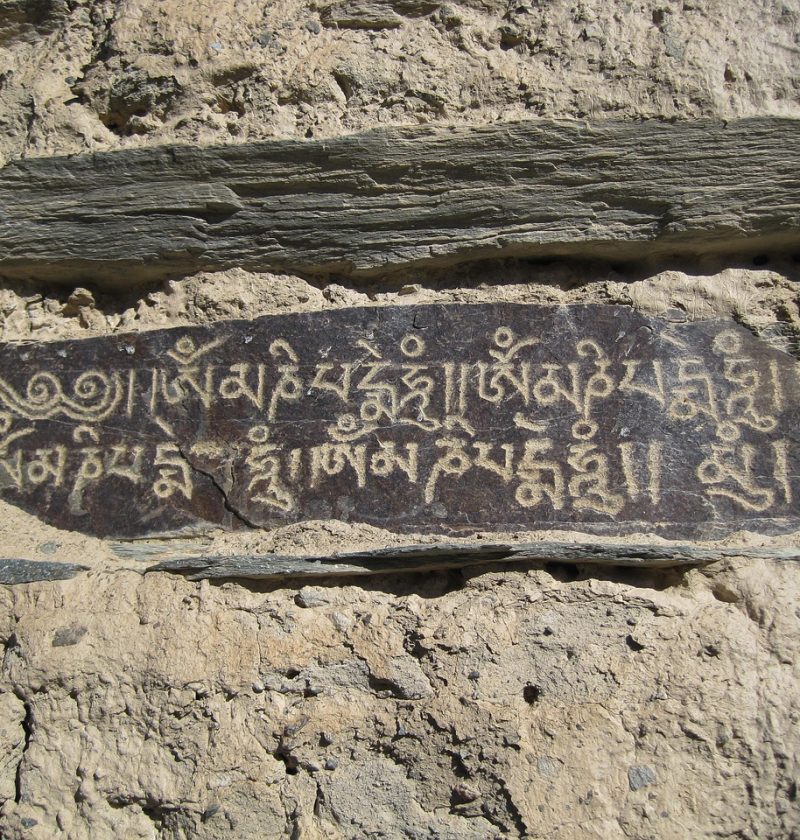 ༄༅།།ཨོཾམཎིཔདྨེཧཱུཾ༎ཨོཾམཎིཔདྨེཧཱུཾ།
ཨོཾམཎིཔདྨེཧཱུཾ།།ཨོཾམཎིཔདྨེཧཱུཾ།།